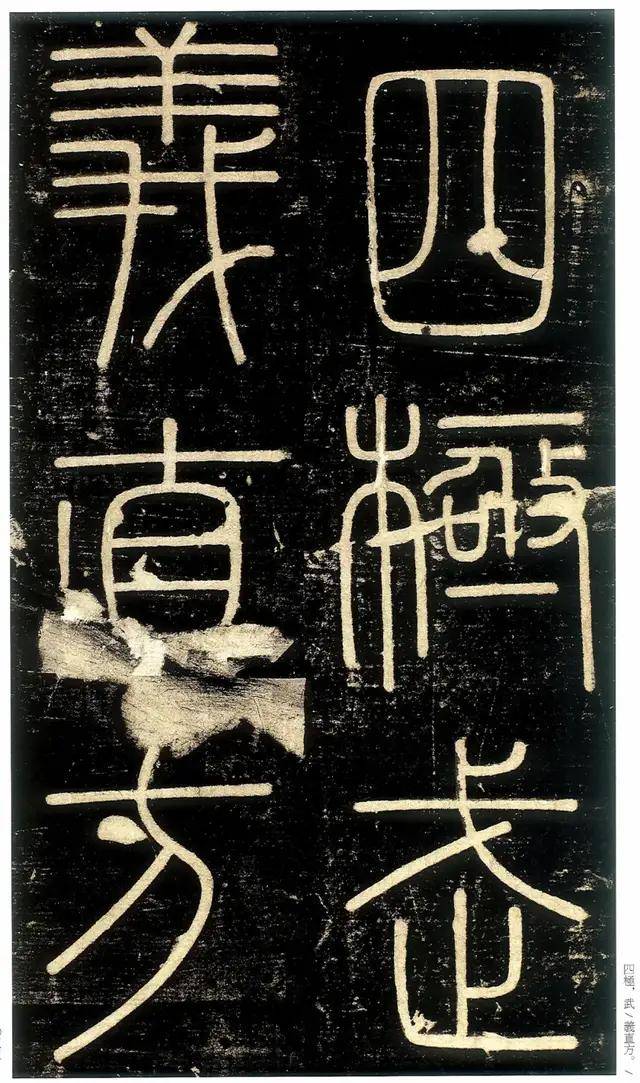 四極武
義直方
四極，武／義直方。／